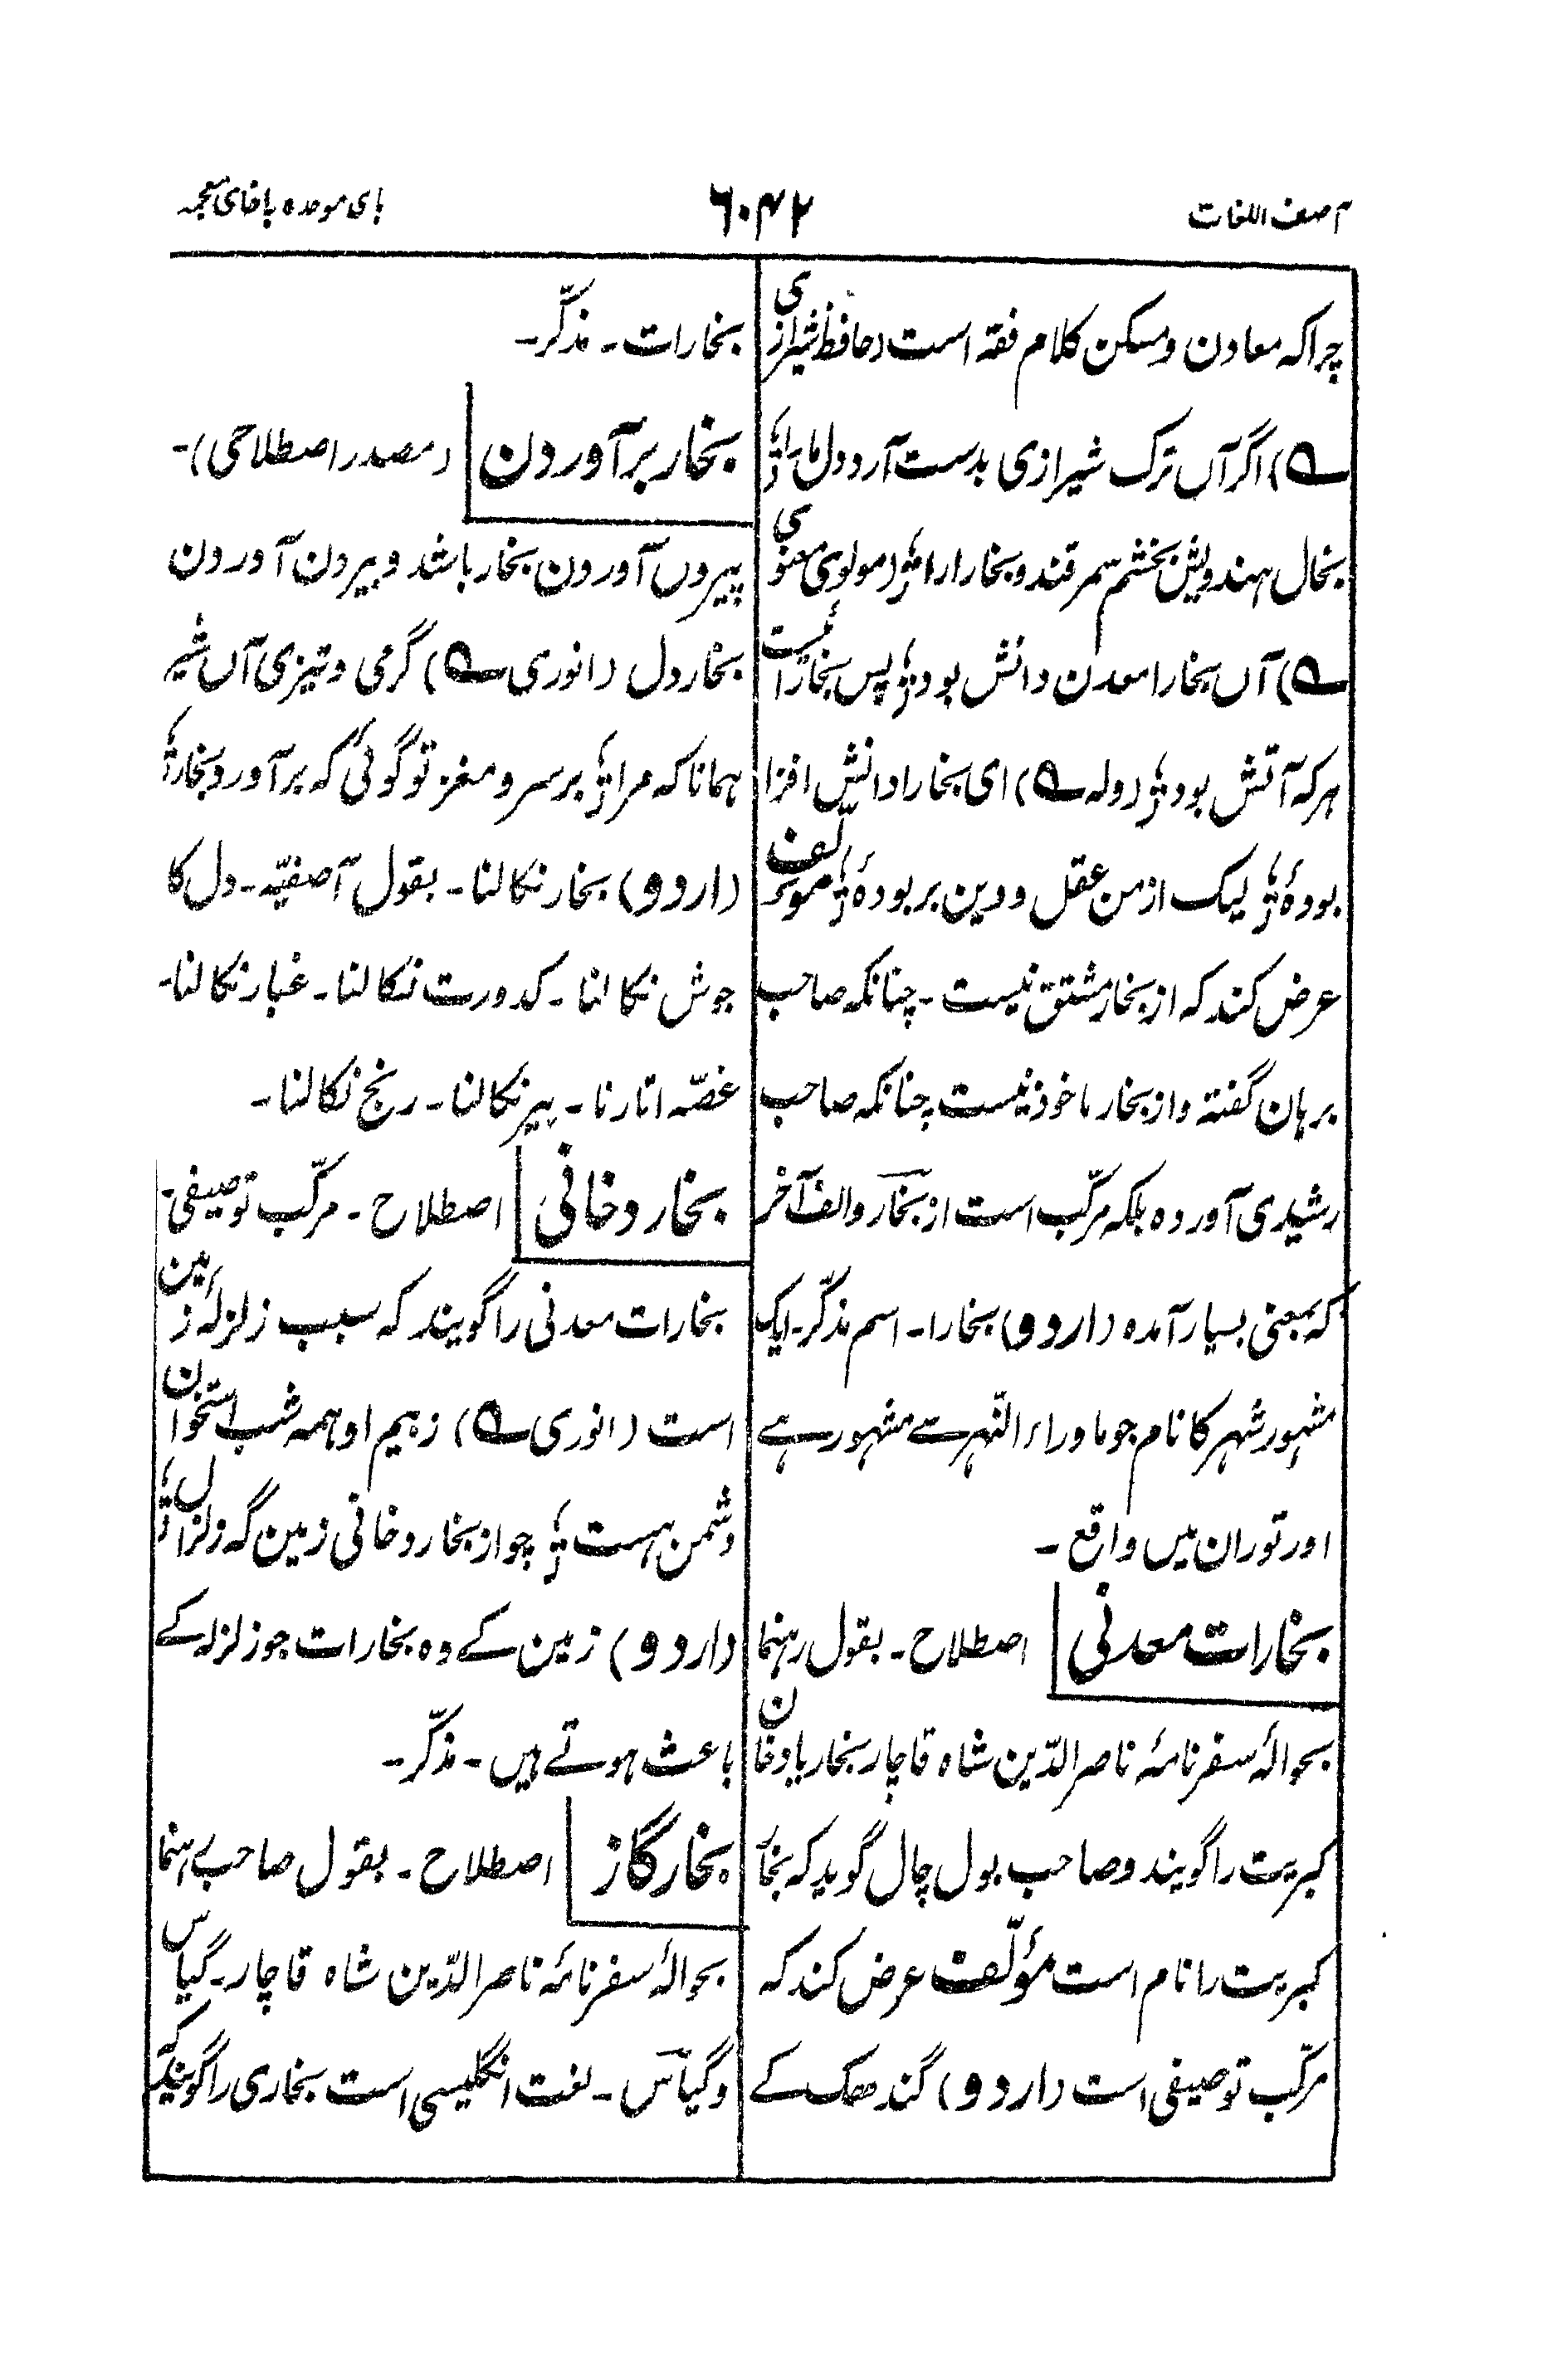 آصف اللغات
۶۰۴۲
بای موحده باخای معجمه
چرا که معادن و مسکن کلام فقه است (حافظ شیرازی
ے) اگر آں ترک شیرازی بدست آرد دل ما را ؛
بخال ہندویش بخشم سمرقند و بخارا را ؛ (مولوی معنوی
ے) آں بخارا معدن دانش بود ؛ پس بخارائیست
ہر کہ آتش بود ؛ (ولہ ے) ای بخارا دانش افزا
بودۂ ؛ لیک از من عقل و دین بربودۂ ؛ مؤلّف
عرض کند کہ از بخار مشتق نیست ۔ چنانکہ صاحب
برہان گفتہ و از بخار ماخوذ نیست چنانکہ صاحب
رشیدی آوردہ بلکہ مرکّب است از بخار و الف آخر
کہ بمعنی بسیار آمدہ (اردو) بخارا ۔ اسم مذکّر ۔ ایک
مشہور شہر کا نام جو ماوراء النّہر سے مشہور ہے
اور توران میں واقع ۔
بخارات معدنی | اصطلاح ۔ بقول رہنما
بحوالۂ سفرنامۂ ناصر الدّین شاہ قاچار بخار یا دخان
کبریت را گویند و صاحب بول چال گوید کہ بخار
کبریت را نام است مؤلّف عرض کند کہ
مرکّب توصیفی است (اردو) گندھک کے
بخارات ۔ مذکّر ۔
بخار برآوردن | (مصدر اصطلاحی) ۔
بیروں آوردن بخار باشد و بیرون آوردن
بخار دل (انوری ے) گرمی و تیزی آں شیر
ہمانا کہ مرا ؛ بر سر و مغز تو گوئی کہ برآورد بخار ؛
(اردو) بخار نکالنا ۔ بقول آصفیّہ ۔ دل کا
جوش نکالنا ۔ کدورت نکالنا ۔ غبار نکالنا ۔
غصّہ اتارنا ۔ بیر نکالنا ۔ رنج نکالنا ۔
بخار دخانی | اصطلاح ۔ مرکّب توصیفی ۔
بخارات معدنی را گویند کہ سبب زلزلۂ زمین
است (انوری ے) ز بیم او ہمہ شب استخوان
دشمن ہست ؛ چو از بخار دخانی زمین گہ زلزال ؛
(اردو) زمین کے وہ بخارات جو زلزلہ کے
باعث ہوتے ہیں ۔ مذکّر ۔
بخار گاز | اصطلاح ۔ بقول صاحب رہنما
بحوالۂ سفرنامۂ ناصر الدّین شاہ قاچار ۔ گیاس
و گیاس ۔ لغت انگلیسی است بخاری را گویند کہ